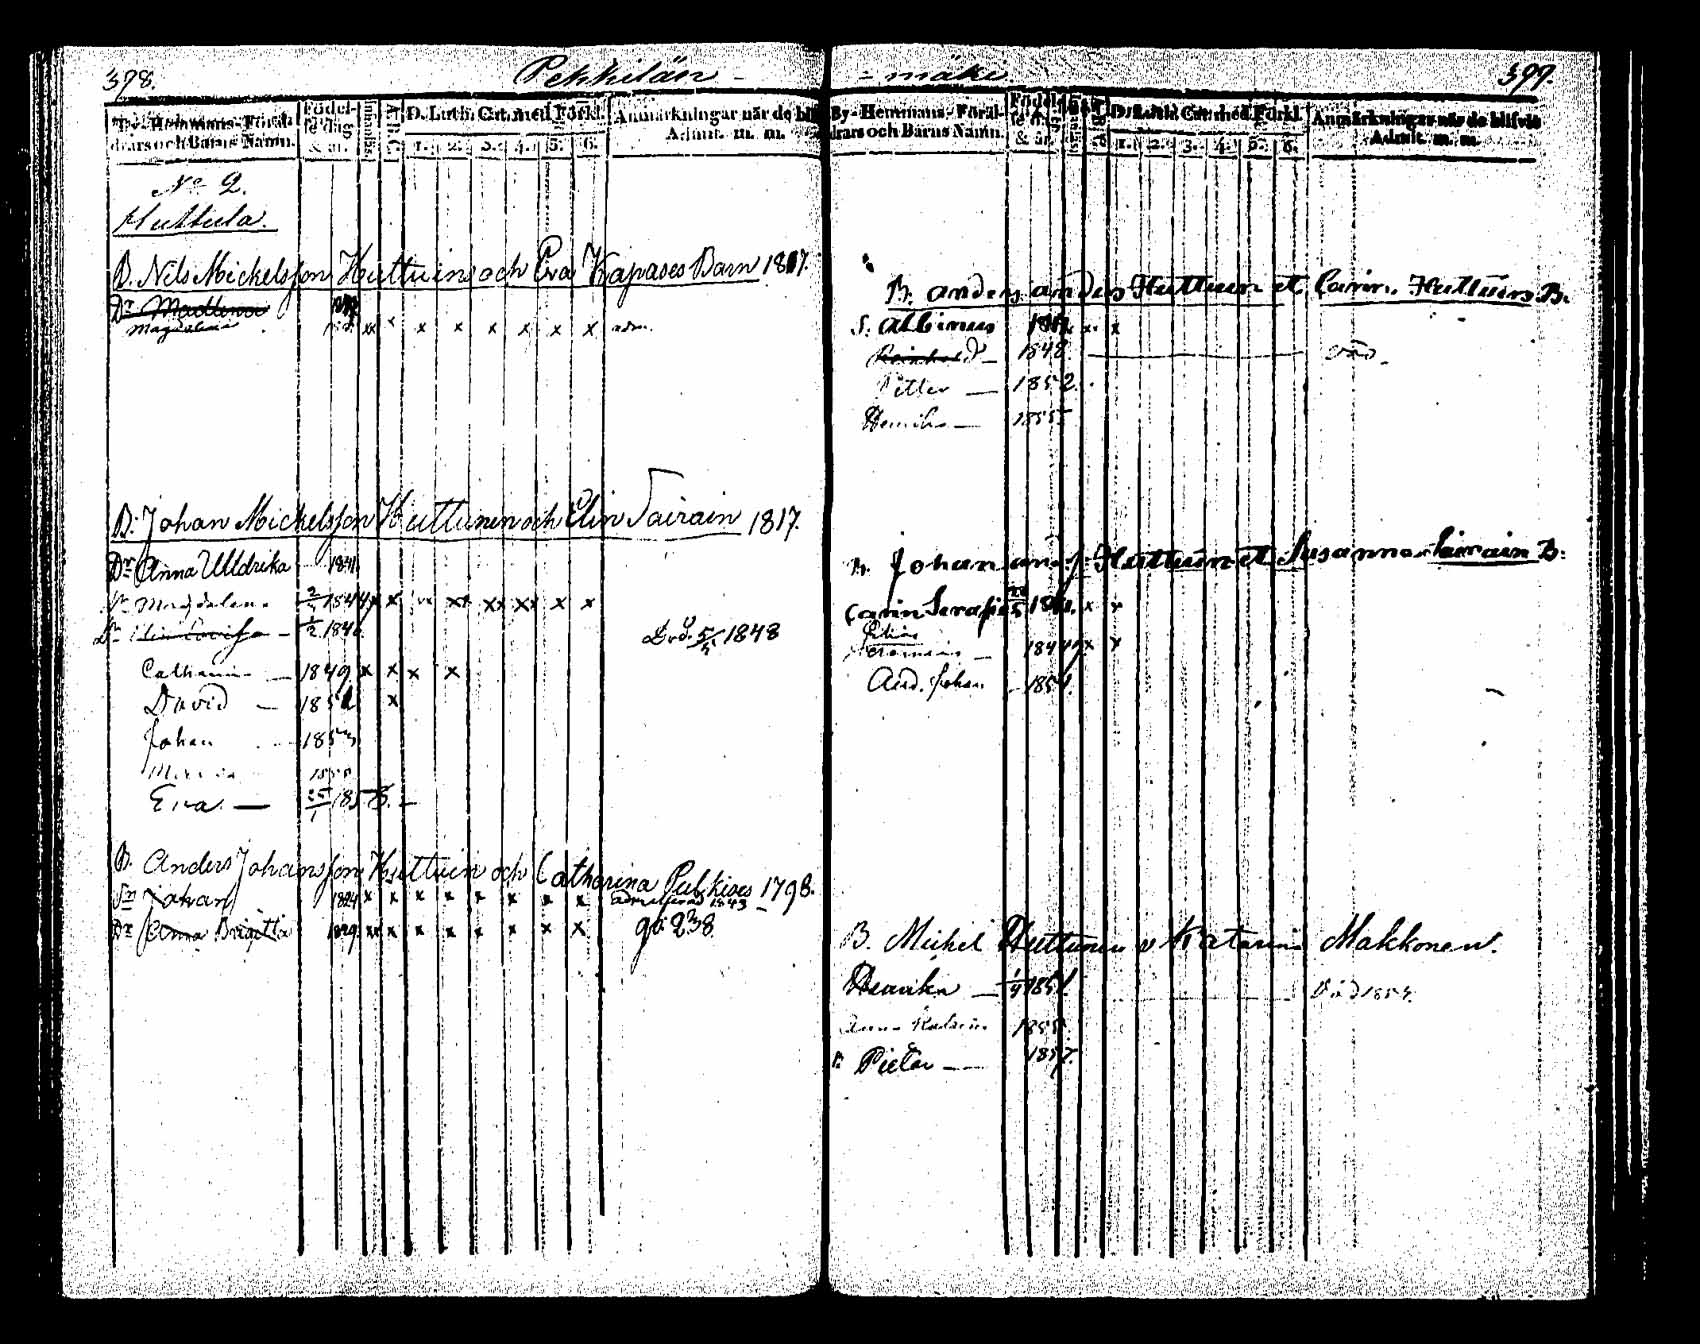 398.
Pekkilän-
-mäki.
399.
By- Hemmans- Föräl-
drars och Barns Namn.
Födel-
se dag
& år.
Innanläs.
A.B.C.
D. Luth. Cat. med Förkl.
1. 2. 3. 4. 5. 6.
Anmärkningar när de bli
Admit. m. m.
No 2.
Huttula.
B. Nils Mickelsson Huttuin och Eva Kapases Barn 1817.
Dr Madlena
Magdalena x x x x x x adm.
B: Johan Mickelsson Huttunen och Elin Tairain 1817.
Dr Anna Ulldrika 1841
Dr Magdalena 1844 x x x x x x x x
Dr Elin Lovisa - 1846 Död 5/5 1848
Catharina - 1849 x x x x
David - 185 x
Johan 1853
Eva. - 25/1 1858. -
B. Anders Johansson Huttuin och Catharina Pulkises 1798.
Sn Johan 1824 x x x x x x x x admitterad 1843
Dr Anna Brigitta 1829 xx x x x x x x go. 238.
By- Hemmans- Föräl-
drars och Barns Namn.
Födelse
& år.
D. Luth. Cat. med Förkl.
1. 2. 3. 4. 5. 6.
Anmärkningar när de blifvit
Admit. m. m.
B. Anders Andes Huttuin et Carin. Huttuins B.
S. Albinus x x
Reinhold - 1848 död.
Petter - 1852.
Henrik - 1855
B. Johan And. s. Huttuin et Susanna Tairain B:
Carin Serafia x x
- 184 x x
And. Johan 1854.
B. Michel Huttunen o Katarina Makkonen.
Henrika - 1/9 1851. Död 1854.
Anna Katarin 1855
Pietar - - 1857.